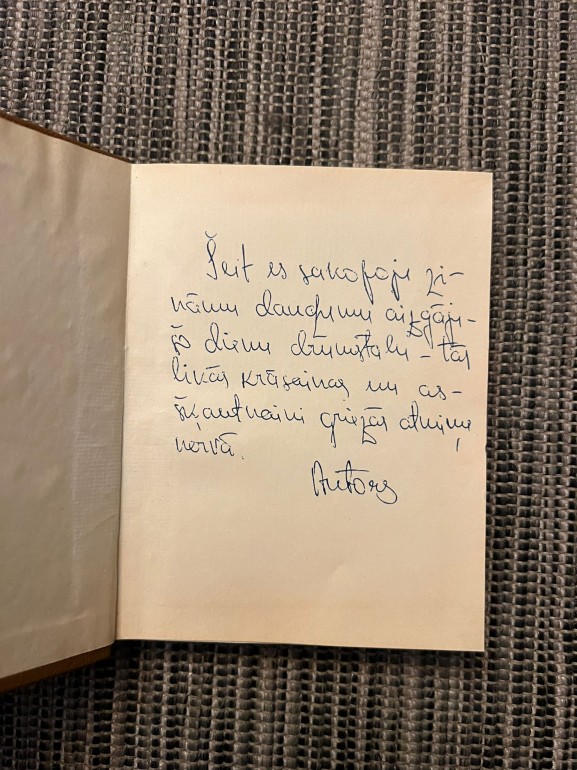 Šeit es sakopoju zi-
nāmu daudzumu aizgāju-
šo dienu drumstalu – tās
likās krāsainas un as-
šķautnaini griezās atmiņu
nervā.
Autors